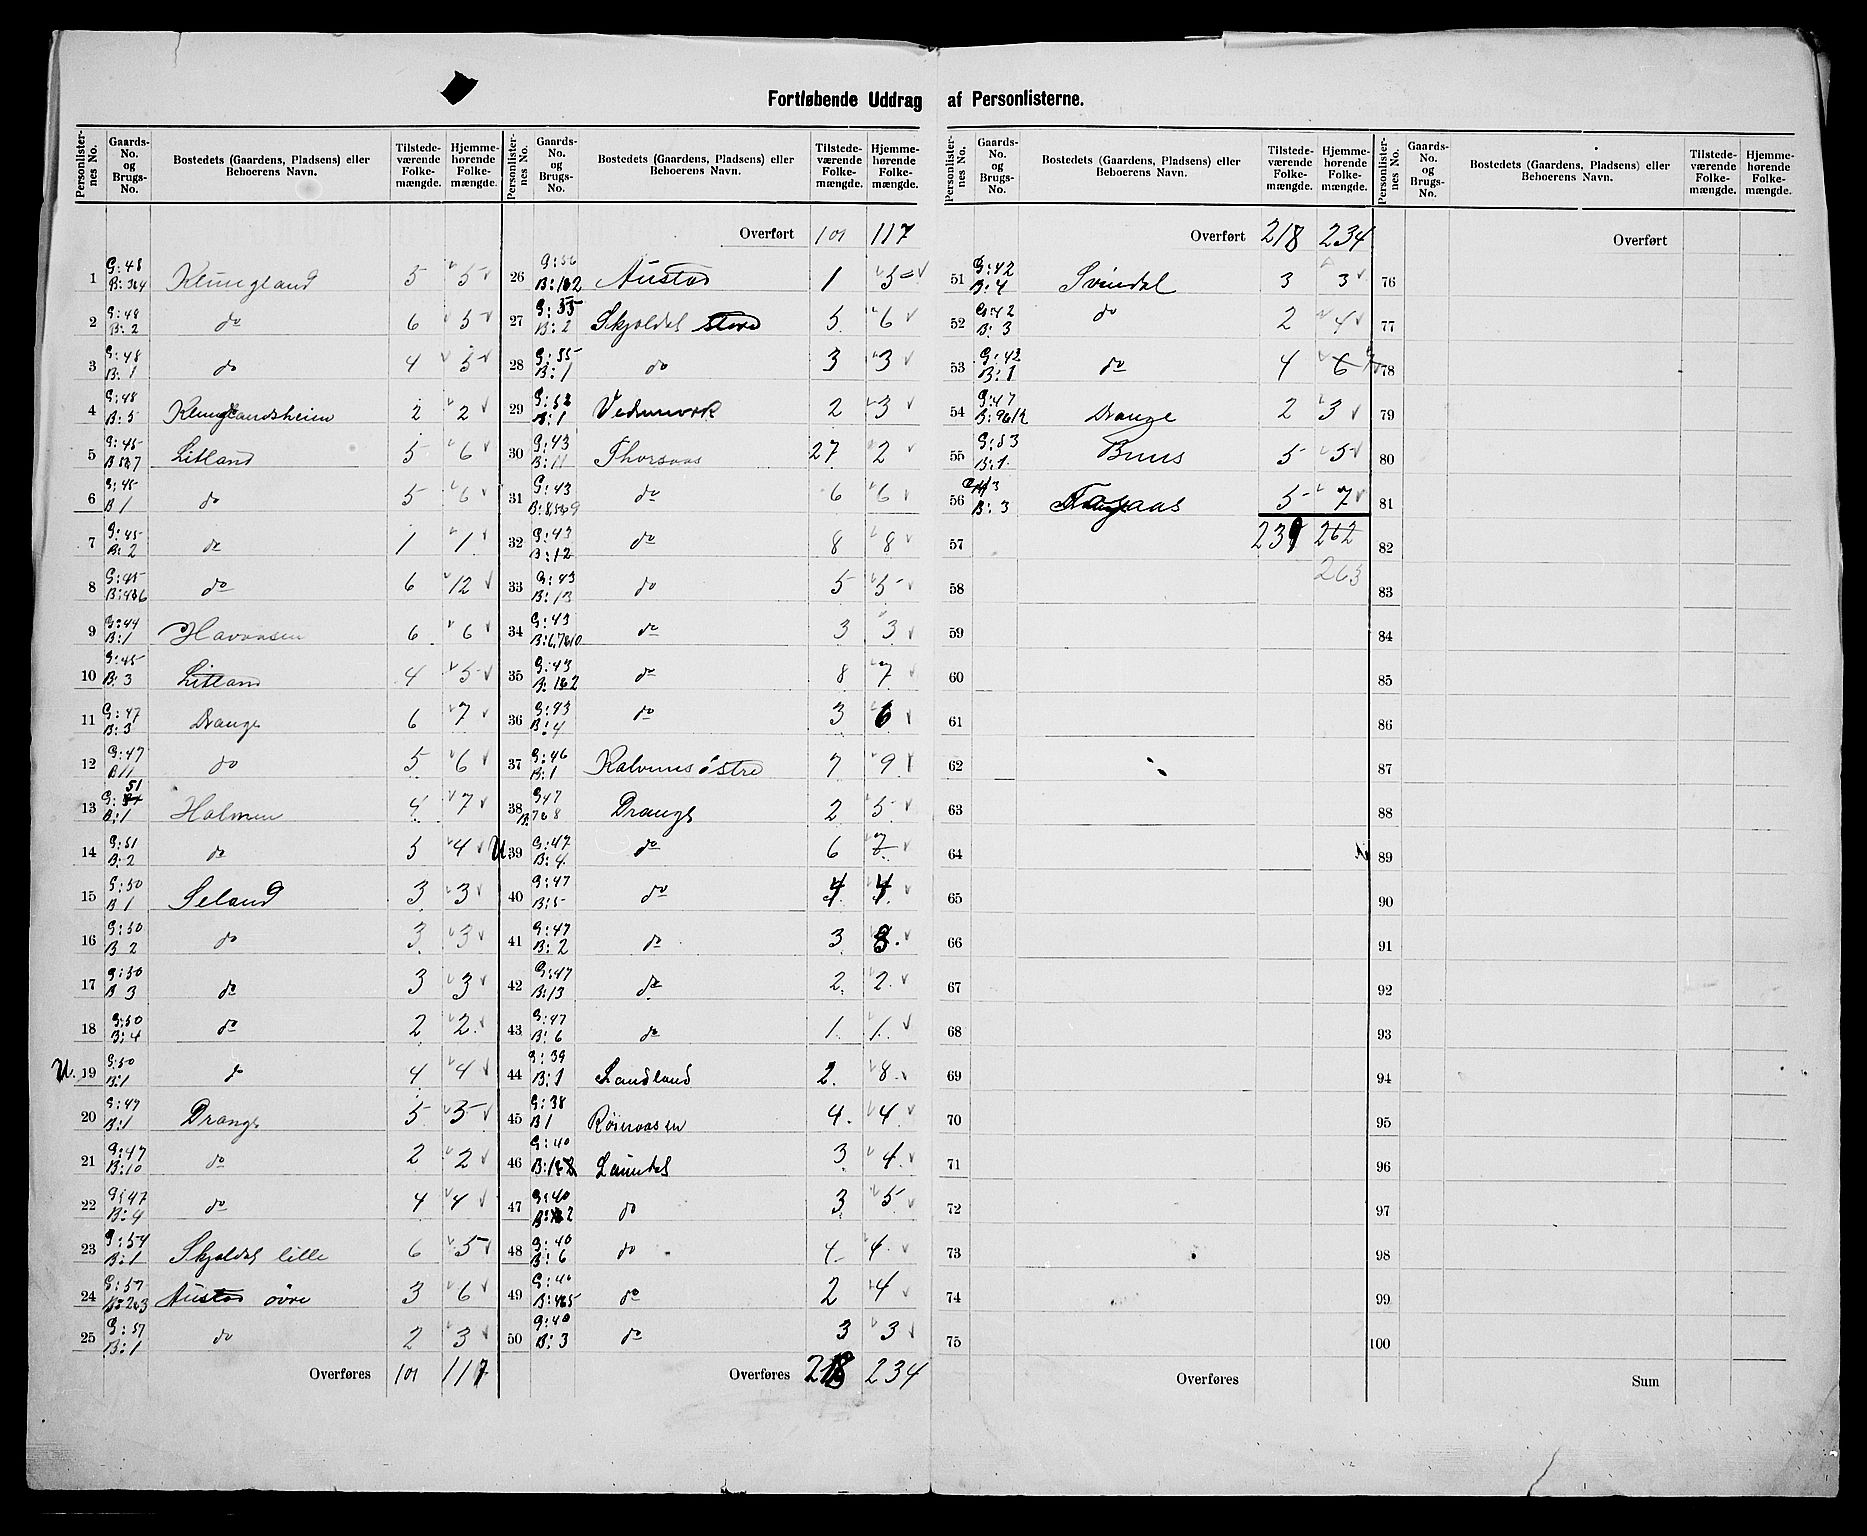 Fortløbende Uddrag af Personlisterne.
Personlister-nes No. Gaards-No. og Brugs-No. Bostedets (Gaardens, Pladsens) eller Beboerens Navn. Tilstede-værende Folke-mængde. Hjemme-hørende Folke-mængde.
1 G:48 B:3&4 Klungland 5 5
2 G:48 B:2 do 6 5
3 G:48 B:1 do 4 5
4 G:48 B:5 Klunglandsheim 2 2
5 G:45 B:5&7 Litland 5 6
6 G:45 B1 do 5 6
7 G:45 B:2 do 1 1
8 G:45 B:4&6 do 6 12
9 G:44 B:1 Havaasen 6 6
10 G:45 B:3 Litland 4 5
11 G:47 B:3 Drange 6 7
12 G:47 B11 do 5 6
13 G:51 B:1 Holmen 4 7
14 G:51 B:2 do 5 4
15 G:50 B1 Seland 3 3
16 G:50 B2 do 3 3
17 G:50 B3 do 3 3
18 G:50 B:4 do 2 2
U. 19 G:50 B:1 do 4 4
20 G:47 B:1 Drange 5 5
21 G:47 B:10 do 2 2
22 G:47 B:4 do 4 4
23 G:54 B:1 Skjoldal lille 6 5
24 G:57 B:2&3 Austad øvre 3 6
25 G:57 B:1 do 2 3
Overføres 101 117
Personlister-nes No. Gaards-No. og Brugs-No. Bostedets (Gaardens, Pladsens) eller Beboerens Navn. Tilstede-værende Folke-mængde. Hjemme-hørende Folke-mængde.
Overført 101 117
26 G:56 B:1&2 Austad 1 5
27 G:55 B:2 Skjoldal store 5 6
28 G:55 B:1 do 3 3
29 G:52 B:1 2 3
30 G:43 B:11 Thorsaas 27 2
31 G:43 B:8,5&9 do 6 6
32 G:43 B:12 do 8 8
33 G:43 B:13 do 5 5
34 G:43 B:6,7&10 do 3 3
35 G:43 B:1&2 do 8 7
36 G:43 B:4 do 3 6
37 G:46 B:1 Kalvenes østre 7 9
38 G47 B:7&8 Drange 2 5
U 39 G:47 B:4 do 6 7
40 G:47 B:5 do 4 4
41 G:47 B:2 do 3 8
42 G:47 B:13 do 2 2
43 G:47 B:6 do 1 1
44 G:39 B:1 Sandland 2 8
45 G:38 B1 Røinaasen 4 4
46 G:40 B:1&2 Lauvdal 3 4
47 G:40 do 3 5
48 G:40 B:6 do 4 4
49 G:40 B:4&5 do 2 4
50 G:40 B:3 do 3 3
Overføres 218 234
Personlister-nes No. Gaards-No. og Brugs-No. Bostedets (Gaardens, Pladsens) eller Beboerens Navn. Tilstede-værende Folke-mængde. Hjemme-hørende Folke-mængde.
Overført 218 234
51 G:42 B:4 Svindal 3 3
52 G:42 B:3 do 2 4
53 G:42 B:1 do 4 6
54 G:47 B:9&12 Drange 2 3
55 G:53 B:1 Buus 5 5
56 B:3 5 7
57 239 262
58 263
59
60
61
62
63
64
65
66
67
68
69
70
71
72
73
74
75
Overføres
Personlister-nes No. Gaards-No. og Brugs-No. Bostedets (Gaardens, Pladsens) eller Beboerens Navn. Tilstede-værende Folke-mængde. Hjemme-hørende Folke-mængde.
Overført
76
77
78
79
80
81
82
83
84
85
86
87
88
89
90
91
92
93
94
95
96
97
98
99
100
Sum